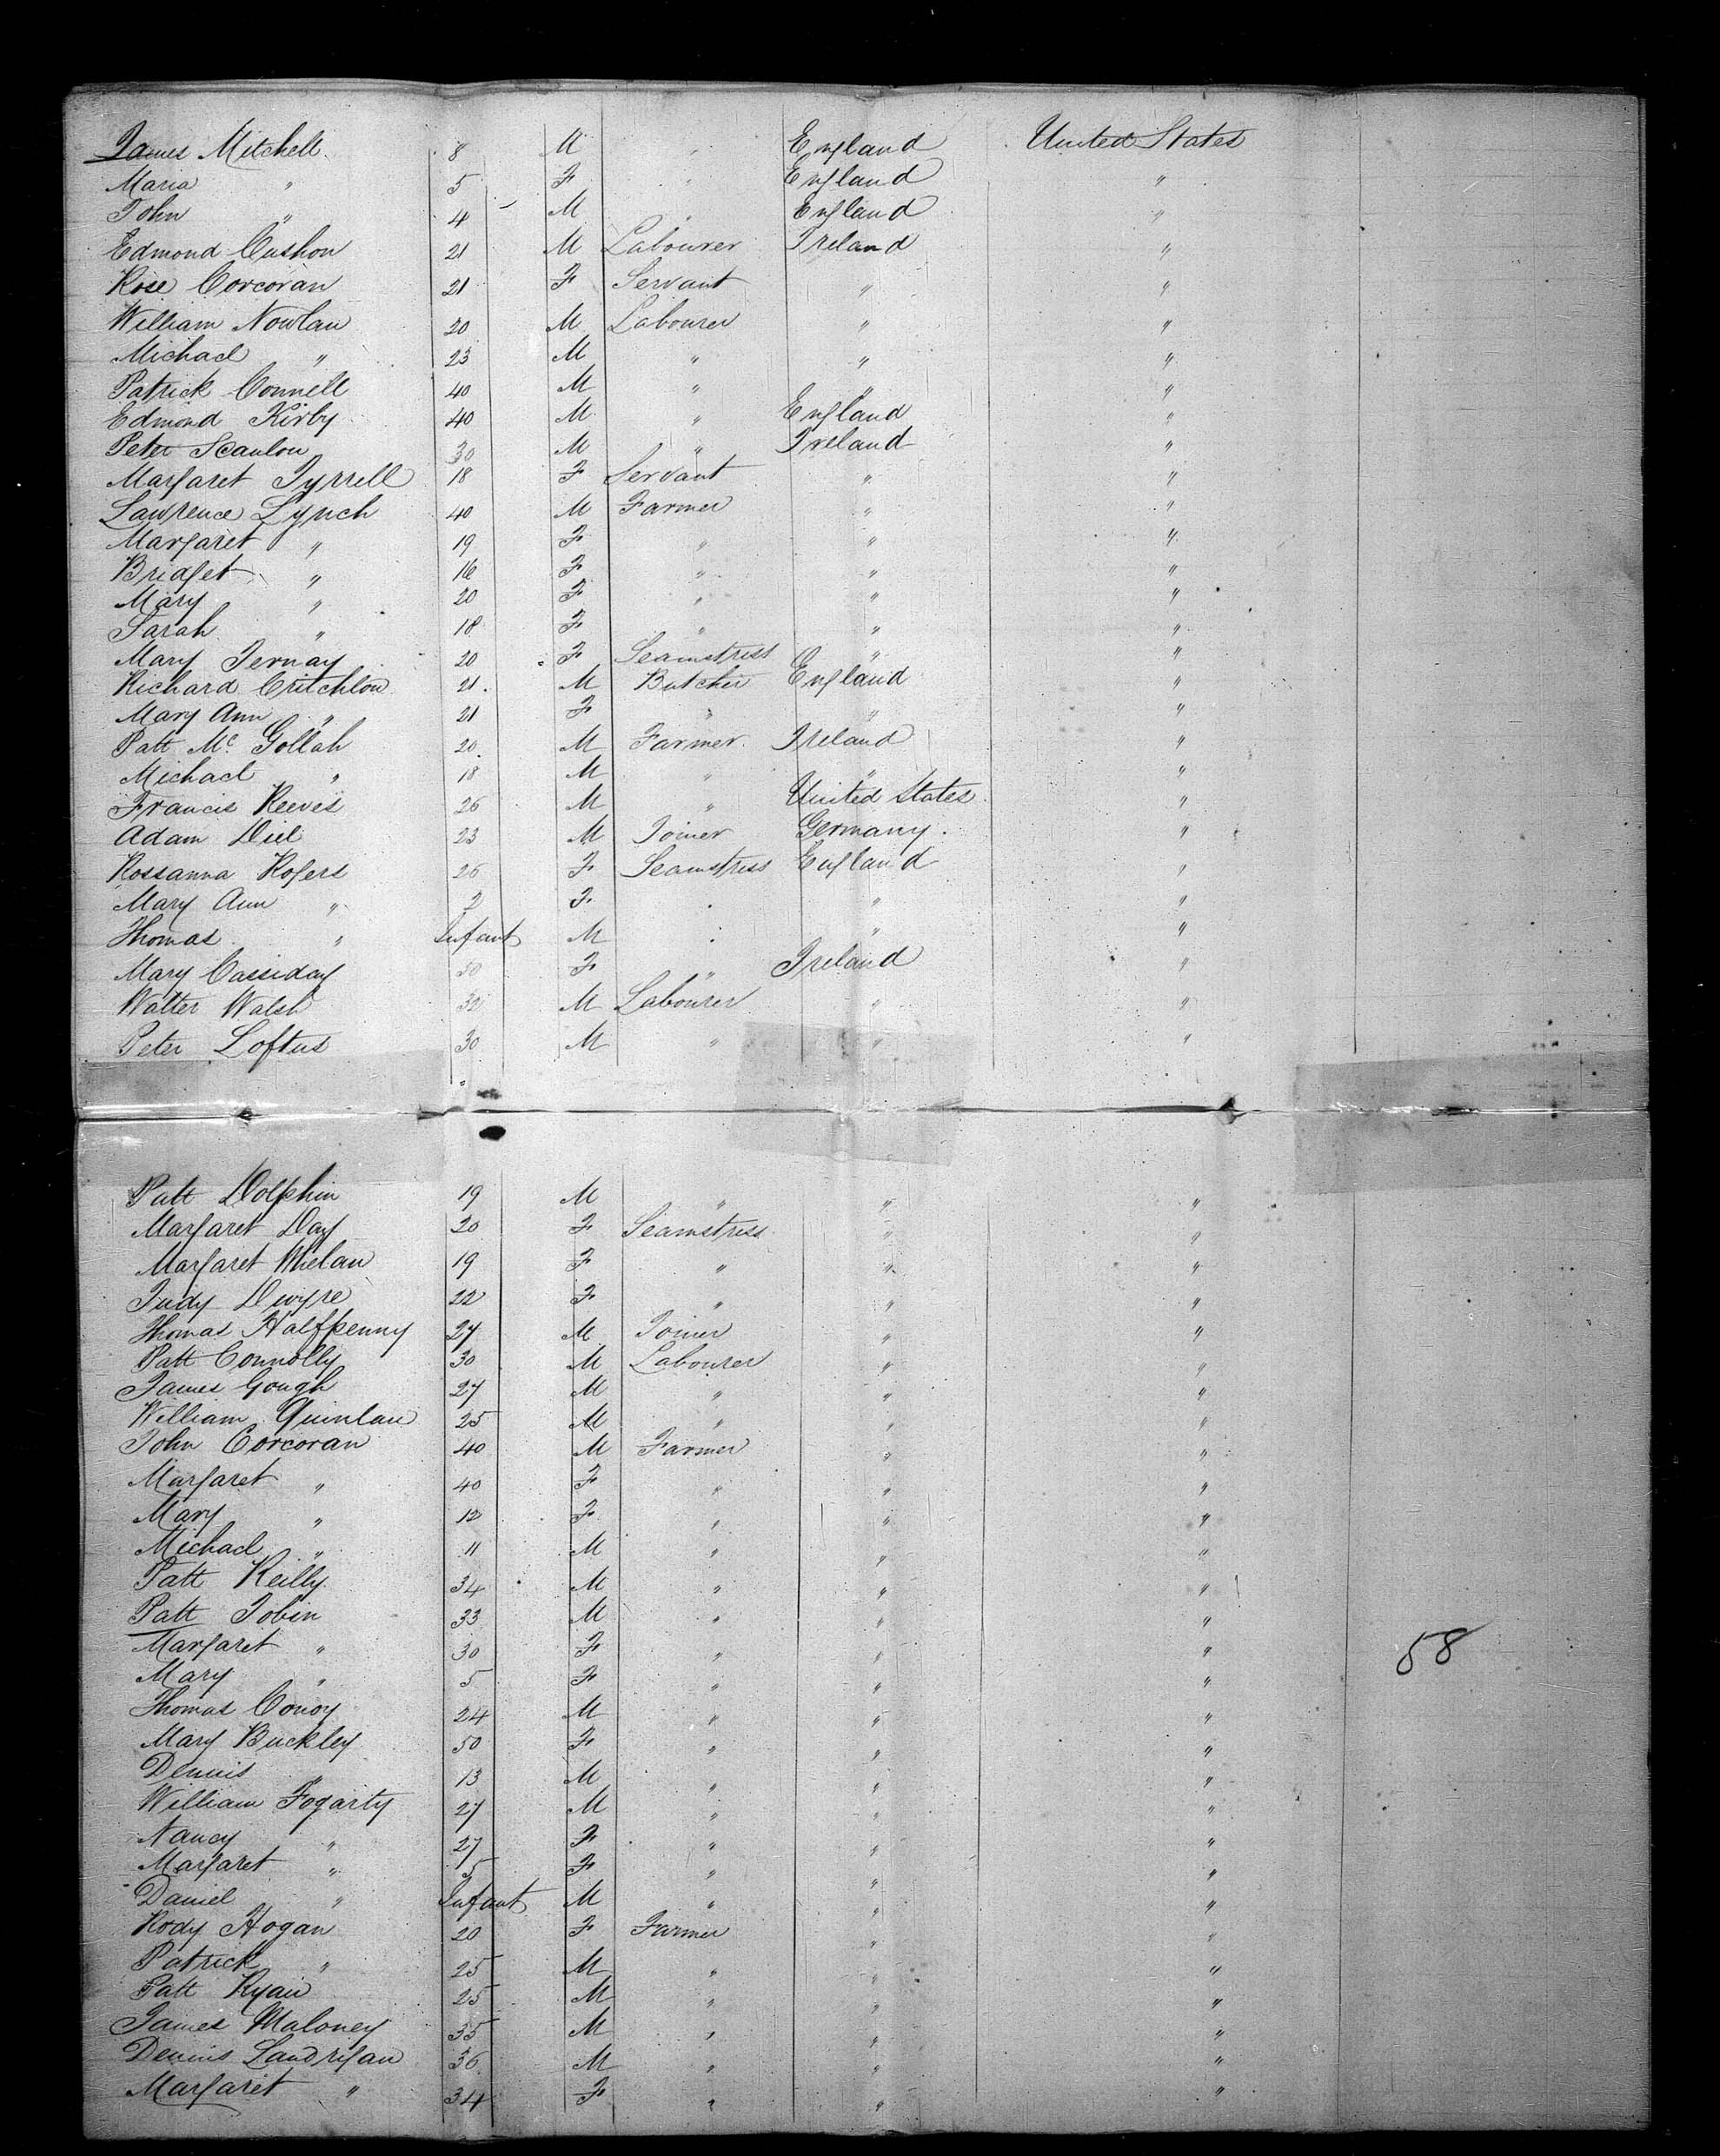 James Mitchell 8 M " England United States
Maria " 5 F " England "
John " 4 M " England "
Edmond Cushon 21 M Labourer Ireland "
Rose Corcoran 21 F Servant " "
William Nowlan 20 M Labourer " "
Michael " 23 M " " "
Patrick Connell 40 M " " "
Edmond Kirby 40 M " England "
Peter Scanlon 30 M " Ireland "
Margaret Tyrrell 18 F Servant " "
Lawrence Lynch 40 M Farmer " "
Margaret " 19 F " " "
Bridget " 16 F " " "
Mary " 20 F " " "
Sarah " 18 F " " "
Mary Ternay 20 F Seamstress " "
Richard Critchlow 21 M Butcher England "
Mary Ann " 21 F " " "
Patt Mc Gollah 20 M Farmer Ireland "
Michael " 18 M " " "
Francis Reeves 26 M " United States "
Adam Diel 23 M Joiner Germany "
Rossanna Rogers 26 F Seamstress England "
Mary Ann " 2 F " "
Thomas " Infant M " "
Mary Cassiday 50 F " Ireland "
Walter Walsh 32 M Labourer " "
Peter Loftus 30 M " " "
Patt Dolphin 19 M " " "
Margaret Day 20 F Seamstress " "
Margaret Whelan 19 F " " "
Judy Dwyre 22 F " " "
Thomas Halfpenny 27 M Joiner " "
Patt Connolly 30 M Labourer " "
James Gough 27 M " " "
William Quinlan 25 M " " "
John Corcoran 40 M Farmer " "
Margaret " 40 F " " "
Mary " 12 F " " "
Michael " 11 M " " "
Patt Reilly 34 M " " "
Patt Tobin 33 M " " "
Margaret " 30 F " " "
Mary " 5 F " " "
58
Thomas Conoy 24 M " " "
Mary Buckley 50 F " " "
Dennis " 13 M " " "
William Fogarty 27 M " " "
Nancy " 27 F " " "
Margaret " 5 F " " "
Daniel " Infant M " " "
Rody Hogan 20 F Farmer " "
Patrick " 25 M " " "
Patt Ryan 25 M " " "
James Maloney 35 M " " "
Dennis Landrigan 36 M " " "
Margaret " 34 F " " "